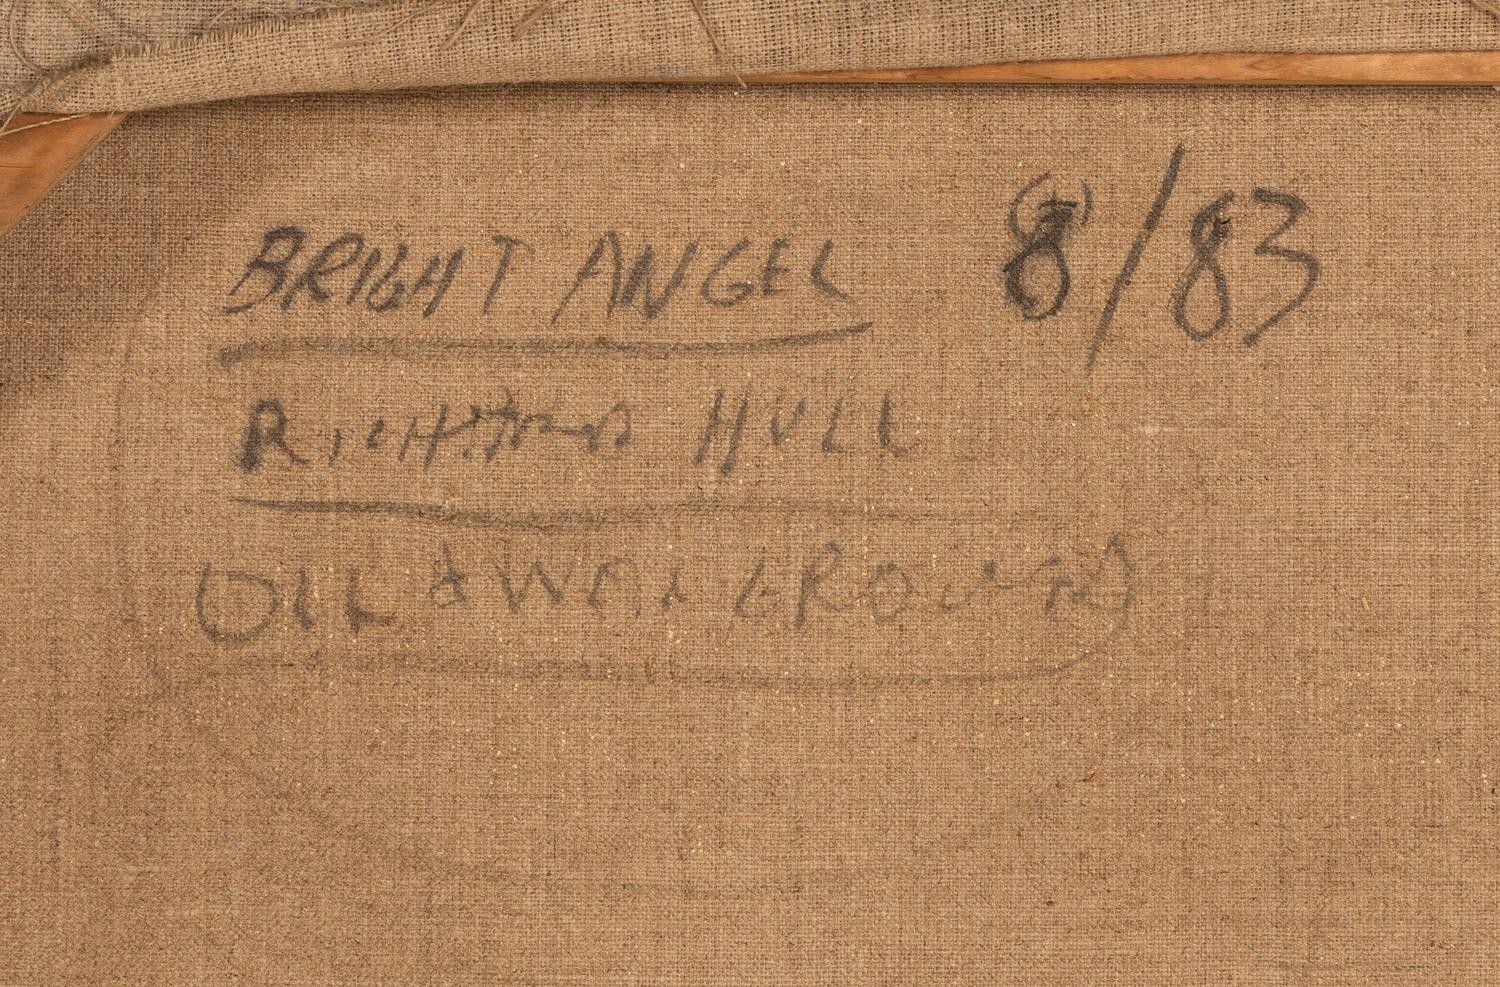 BRIGHT ANGEL 8/83
RICHARD HULL
OIL & WAX GROUND